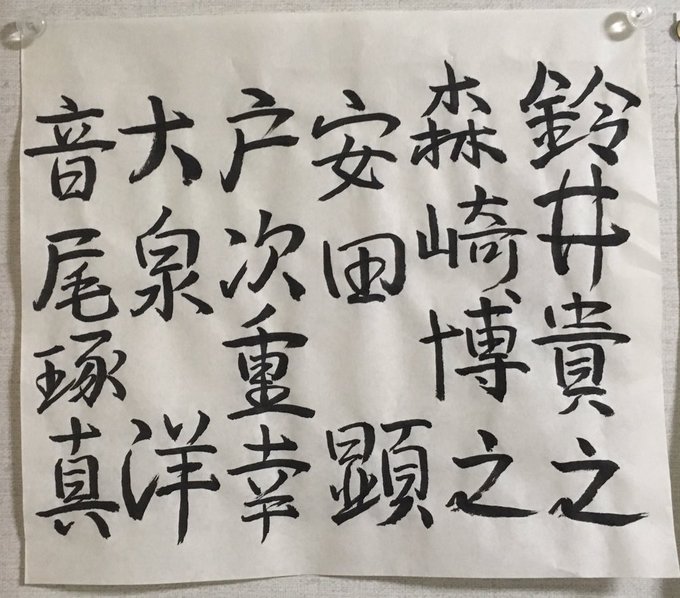 鈴井貴之
森崎博之
安田顕
戸次重幸
大泉洋
音尾琢真